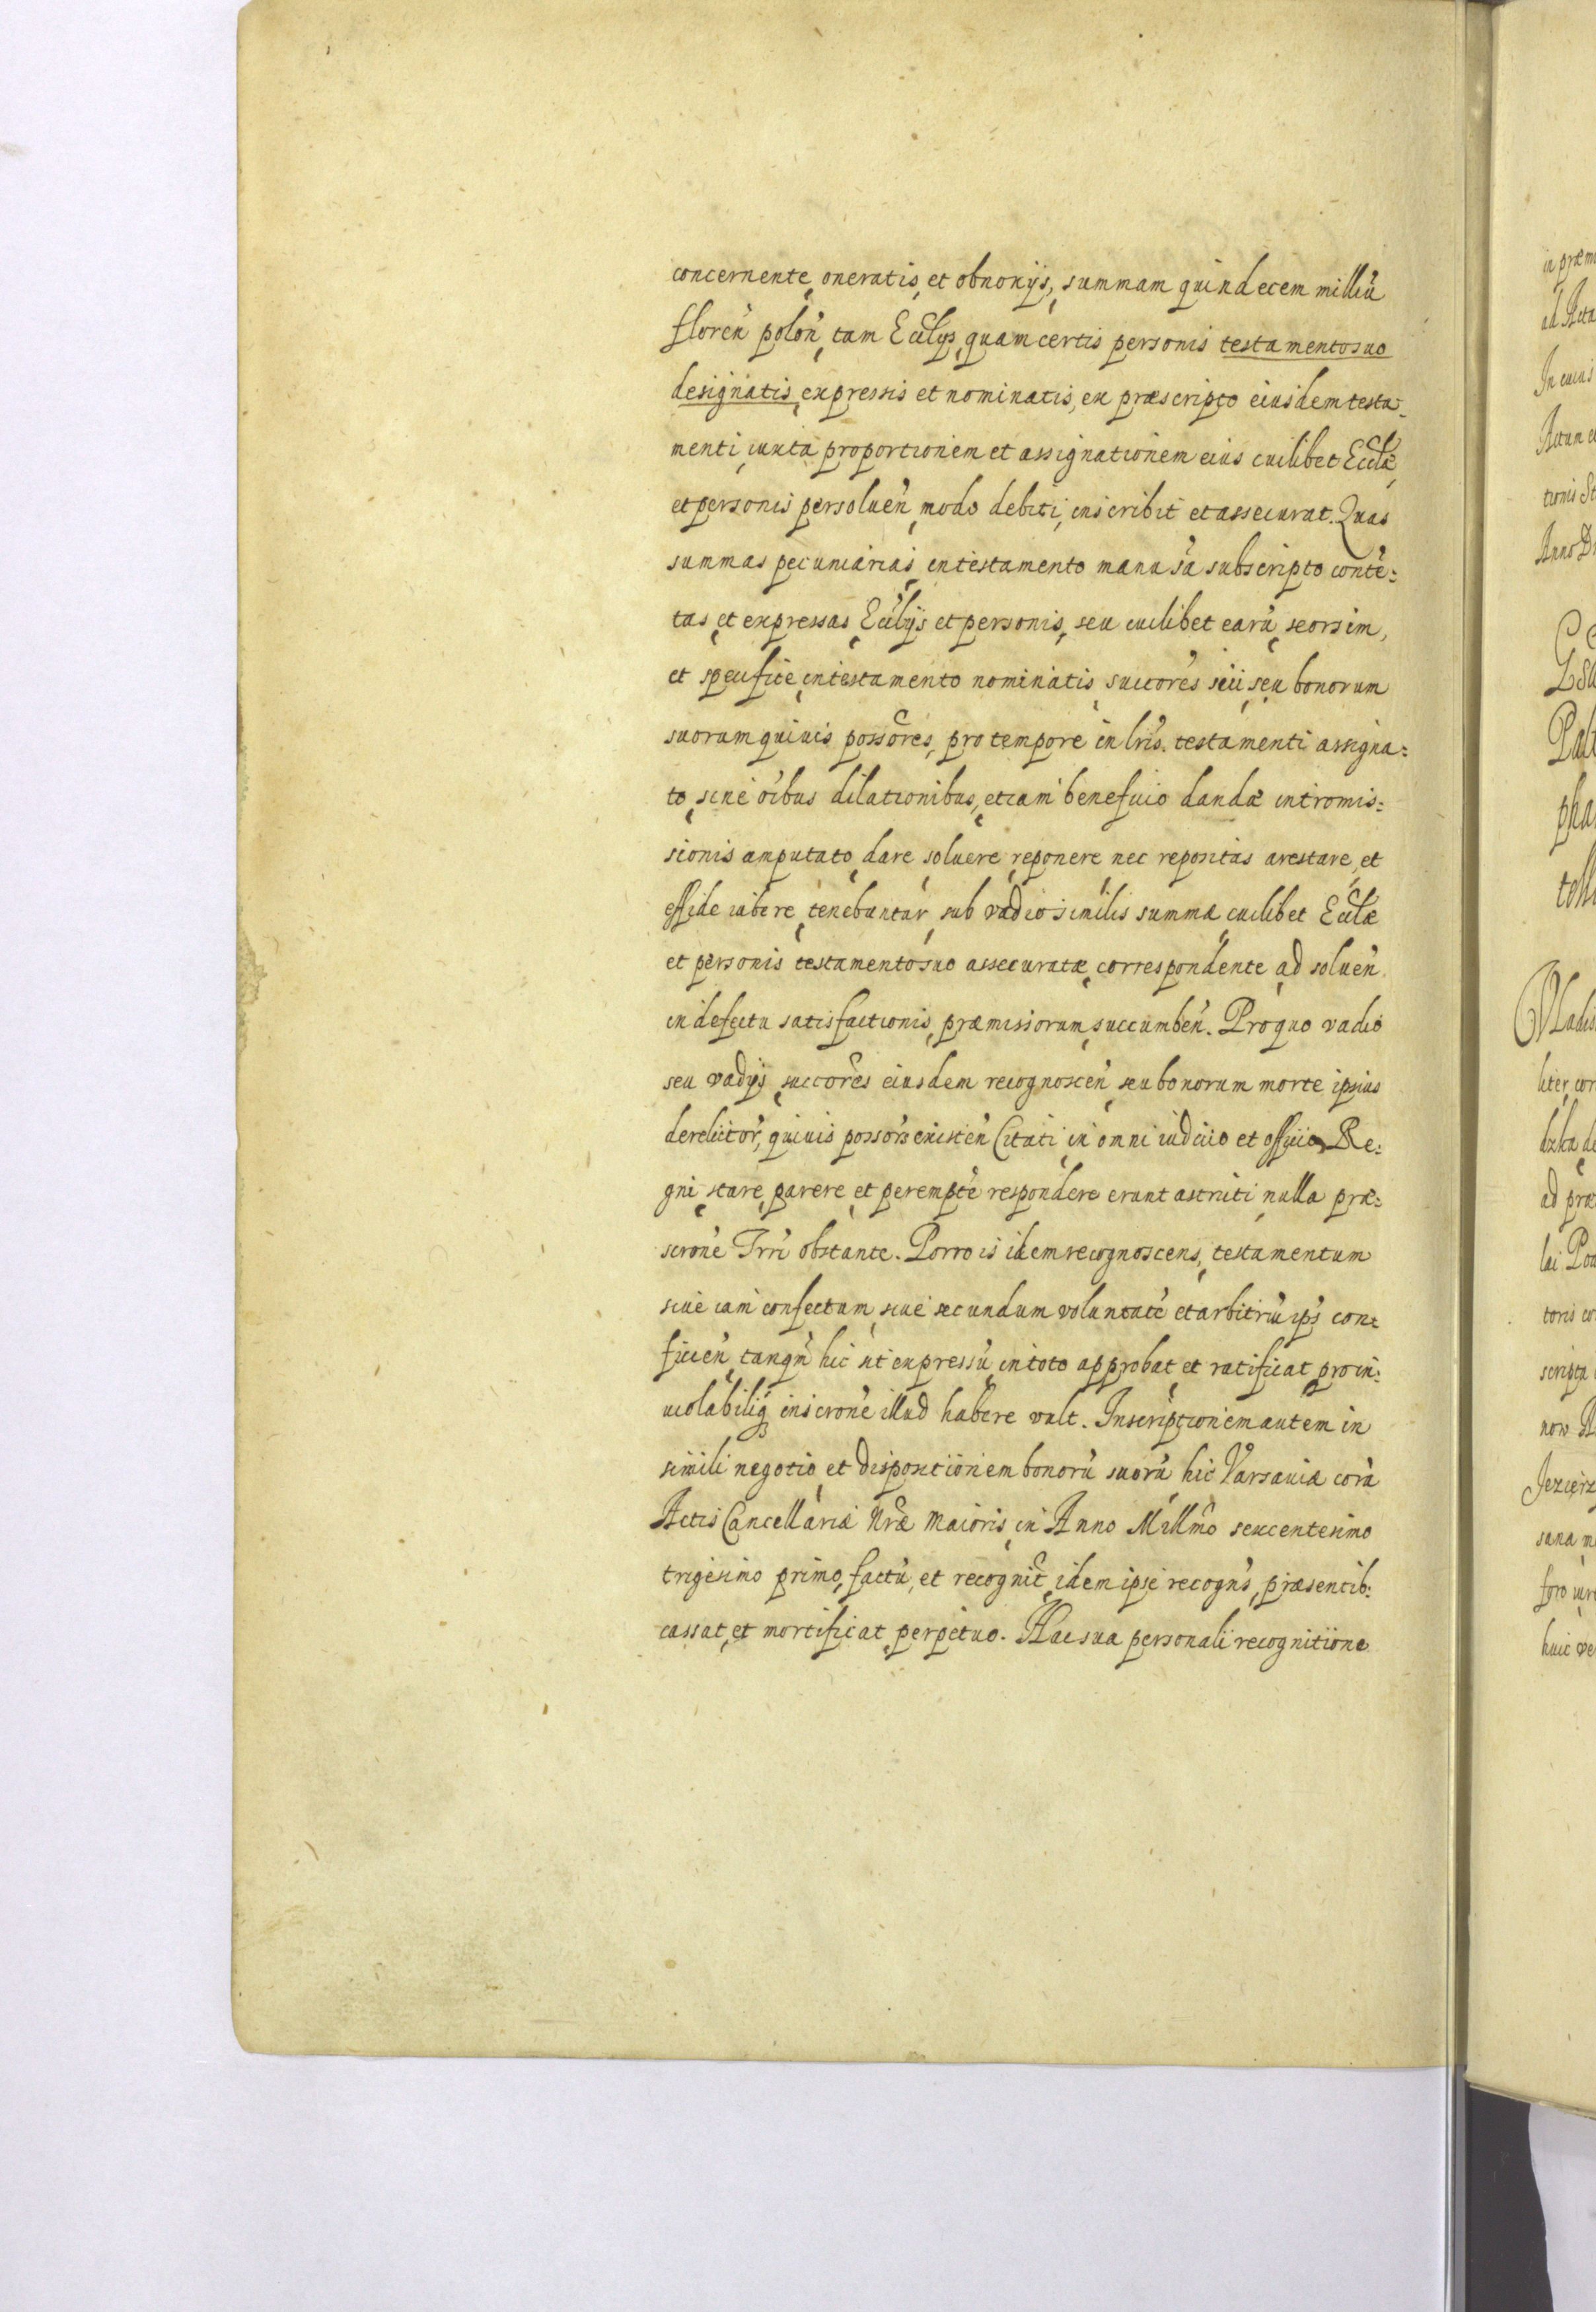 concernente, oneratis, et obnoxijs, summam quindecem milliũ
floreñ poloñ, tam Ecclijs, quam certis personis testamento suo
designatis, expressis et nominatis, ex præscripto eiusdem testa-
menti, iuxta proportionem et assignationem eius cuilibet Ecclæ,
et personis persolueñ, modo debiti, inscribit et assecurat. Quas
summas pecuniarias, in testamento manu sũa subscripto contẽ:
tas, et expressas, Ecclijs et personis, seu cuilibet earũ, seorsim,
et specifice, in testamento nominatis, succores sui, seu bonorum
suorum quiuis possores, pro tempore in lris. testamenti assigna:
to, sine oibus dilationibus, etiam beneficio dandæ intromis:
sionis amputato, dare, soluere, reponere, nec repositas arestare, et
efficere iubere, tenebuntur, sub vadio similis summæ, cuilibet Ecclæ
et personis testamento suo assecuratæ, correspondente, ad solueñ
in defectu satisfactionis, præmissorum, succumbeñ. Pro quo vadio
seu vadijs, succores eiusdem recognosceñ, seu bonorum morte ipsius
derelictor, quiuis possors existeñ Citati, in omni iudicio et officio Re:
gni, stare, parere, et perempte respondere erunt astricti, nulla præ:
scrone Trri obstante. Porro is idem recognoscens, testamentum
siue iam confectum, siue secundum voluntatẽ et arbitriũ ips con:
ficieñ, tanqm hic ut expressũ, in toto approbat, et ratificat, pro in:
uiolabiliq inscrone illud habere vult. Inscriptionem autem in
simili negotio, et dispositionem bonorũ suorũ hic Varsauiæ corã
Actis Cancellariæ Nræ Maioris, in Anno Millmo sexcentesimo
trigesimo primo, factũ, et recognit, idem ipse recogns, præsentib:
cassat, et mortificat, perpetuo. Hac sua personali recognitione